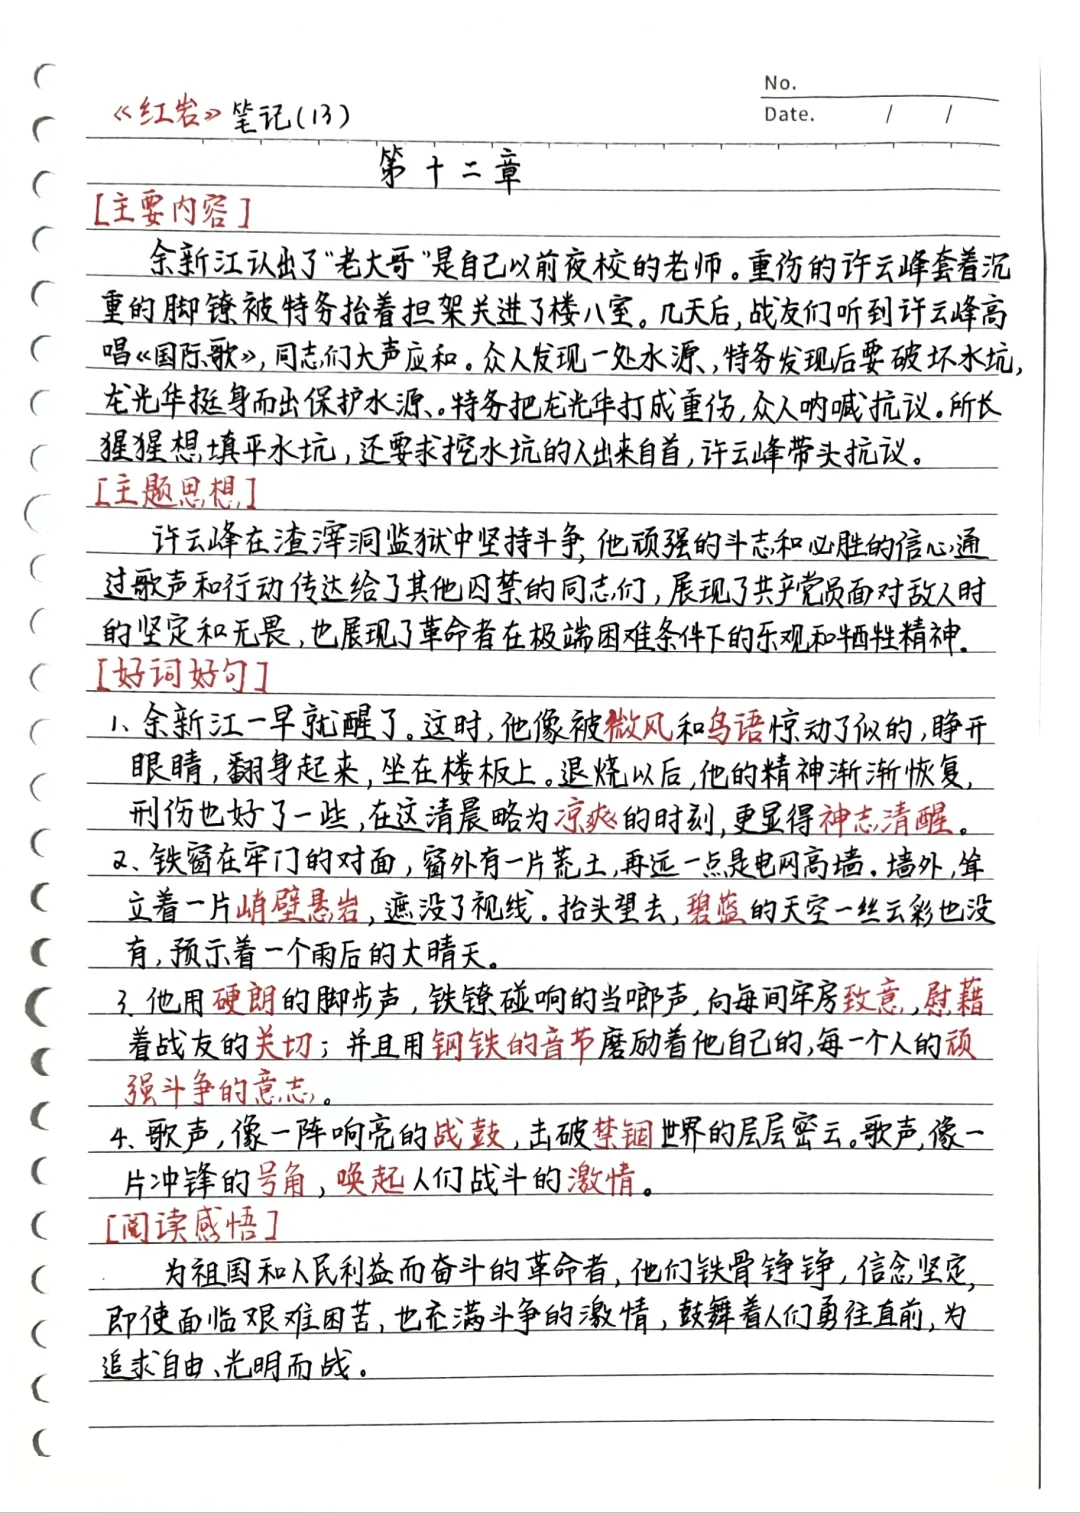 No.
《红岩》笔记(13)
Date. / /
第十二章
[主要内容]
余新江认出了"老大哥"是自己以前夜校的老师。重伤的许云峰套着沉
重的脚镣被特务抬着担架关进了楼八室。几天后,战友们听到许云峰高
唱《国际歌》,同志们大声应和。众人发现一处水源、特务发现后要破坏水坑,
龙光华挺身而出保护水源、。特务把龙光华打成重伤,众人呐喊抗议。所长
猩猩想填平水坑,还要求挖水坑的人出来自首,许云峰带头抗议。
[主题思想]
许云峰在渣滓洞监狱中坚持斗争,他顽强的斗志和必胜的信心通
过歌声和行动传达给了其他囚禁的同志们,展现了共产党员面对敌人时
的坚定和无畏,也展现了革命者在极端困难条件下的乐观和牺牲精神.
[好词好句]
1、余新江一早就醒了。这时,他像被微风和鸟语惊动了似的,睁开
眼睛,翻身起来,坐在楼板上。退烧以后,他的精神渐渐恢复,
刑伤也好了一些,在这清晨略为凉爽的时刻,更显得神志清醒。
2、铁窗在牢门的对面,窗外有一片荒土,再远一点是电网高墙.墙外,耸
立着一片峭壁悬岩,遮没了视线.抬头望去,碧蓝的天空一丝云彩也没
有,预示着一个雨后的大晴天。
3.他用硬朗的脚步声,铁镣碰响的当啷声,向每间牢房致意,慰藉
着战友的关切;并且用钢铁的音节磨励着他自己的,每一个人的顽
强斗争的意志。
4、歌声,像一阵响亮的战鼓,击破禁锢世界的层层密云。歌声,像一
片冲锋的号角,唤起人们战斗的激情。
[阅读感悟]
为祖国和人民利益而奋斗的革命者,他们铁骨铮铮,信念坚定,
即使面临艰难困苦,也充满斗争的激情,鼓舞着人们勇往直前,为
追求自由、光明而战。